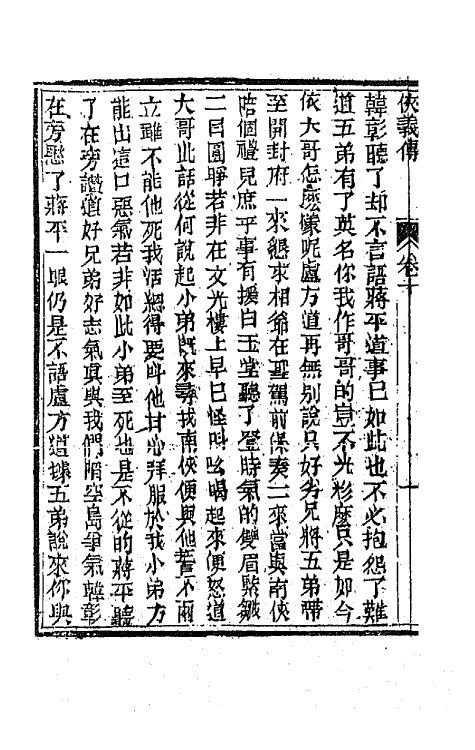 俠義傳　卷十　一
韓彰聽了却不言語蔣平道事已如此也不必抱怨了難
道五弟有了英名你我作哥哥的豈不光彩麼只是如今
依大哥怎麼樣呢盧方道再無別說只好劣兄將五弟帶
至開封府一來懇求相爺在聖駕前保奏二來當與南俠
陪個禮兒庶乎事有援白玉堂聽了登時氣的雙眉緊皺
二目圓睜若非在文光樓上早已怪叫吆喝起來便怒道
大哥此話從何說起小弟既來尋找南俠便與他誓不兩
立雖不能他死我活總得要叫他甘心拜服於我小弟方
能出這口惡氣若非如此小弟至死也是不從的蔣平聽
了在旁讚道好兄弟好志氣真與我們陷空島爭氣韓彰
在旁瞅了蔣平一眼仍是不語盧方道據五弟說來你與